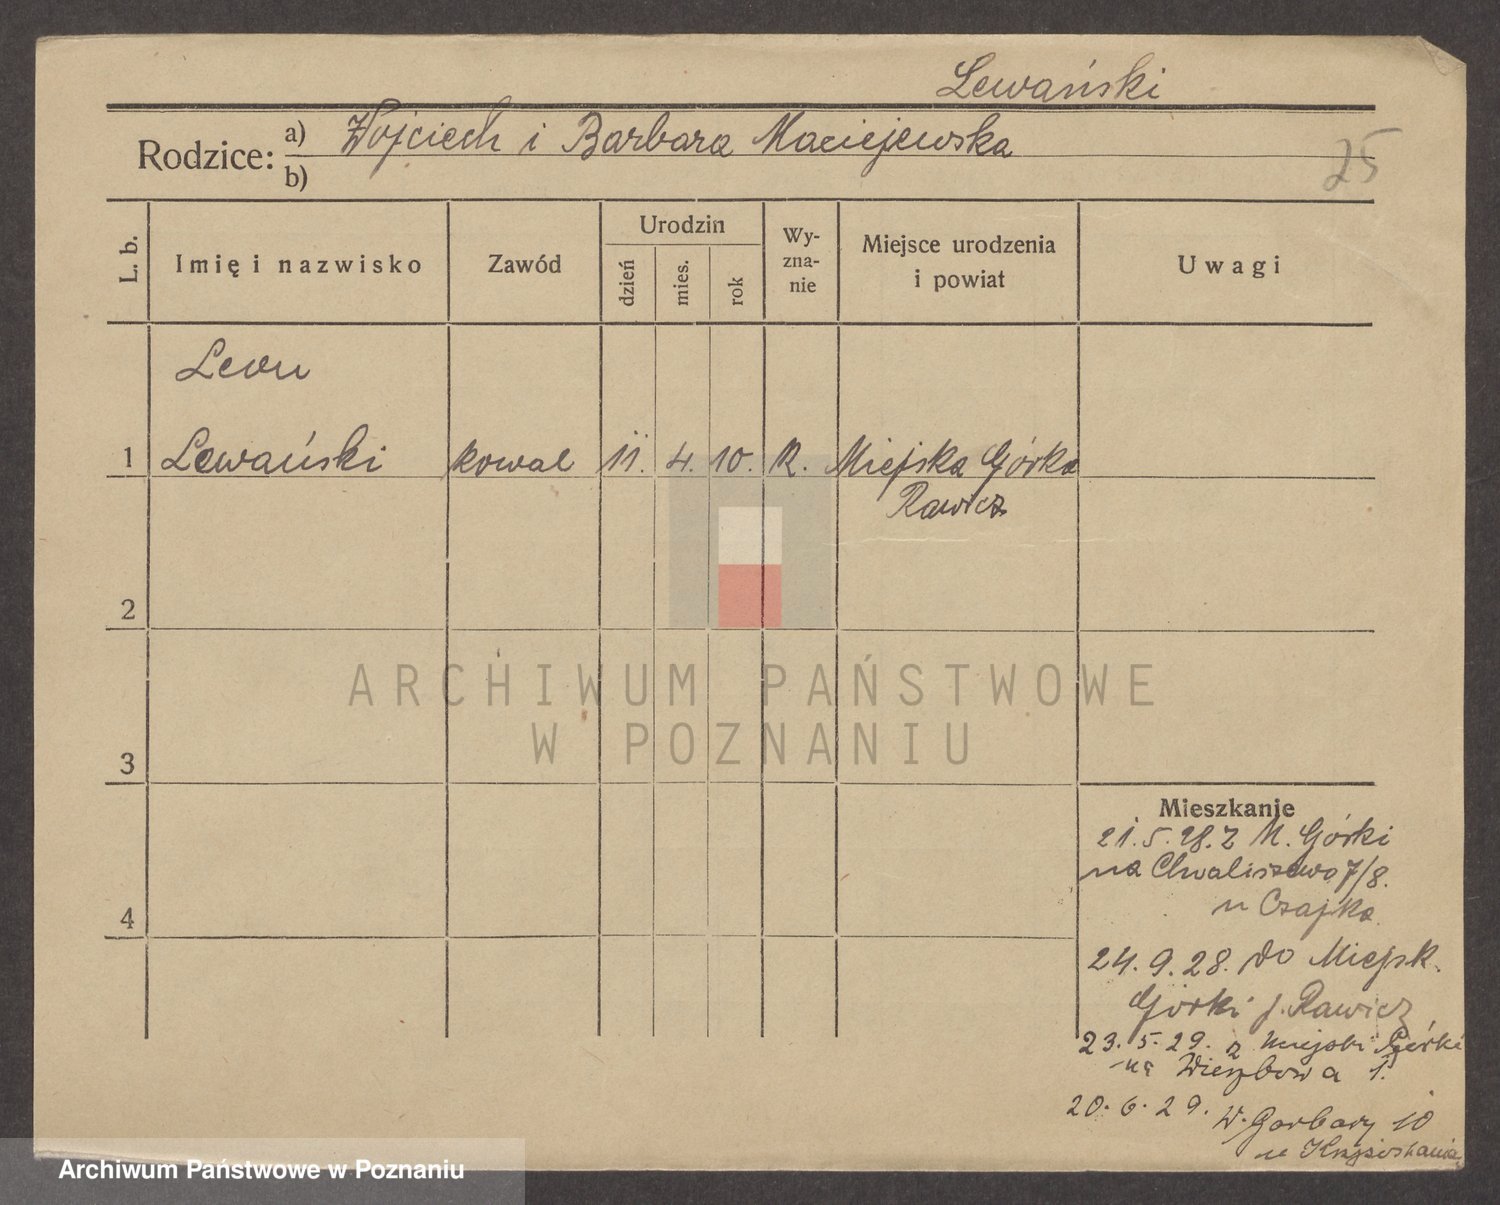 Lewański
Rodzice: a) Wojciech i Barbara Maciejewska
b)
25
L. b.
Imię i nazwisko
Zawód
Urodzin
dzień
mies.
rok
Wy-
zna-
nie
Miejsce urodzenia
i powiat
Uwagi
Leon
1 Lewański kowal 11. 4. 10. R. Miejska Górka
Rawicz
2
3
4
ARCHIWUM PAŃSTWOWE
W POZNANIU
Mieszkanie
21.5.28. z M. Górki
na Chwaliszewo 7/8.
u Czajka
24.9.28. do Miejsk.
Górki p. Rawicz
23.5.29. z Miejski Górki
na Wierzbowa 1.
20.6.29. W. Garbary 10
u
Archiwum Państwowe w Poznaniu